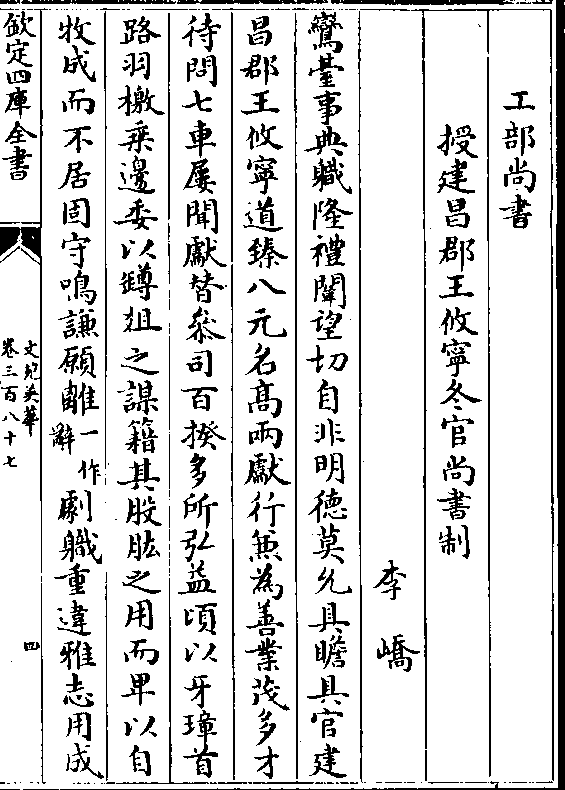 工部尚書
授建昌郡王攸寧冬官尚書制
李嶠
鸞臺事典職隆禮闈望切自非明德莫允具瞻具官建
昌郡王攸寧道臻八元名髙兩獻行兼為善業茂多才
待問七車屢聞獻替叅司百揆多所弘益頃以牙璋首
路羽檄乗邊委以罇俎之謀籍其股肱之用而卑以自
牧成而不居固守鳴謙願離一作辭劇職重違雅志用成
欽定四庫全書
文苑英華
卷三百八十七
四